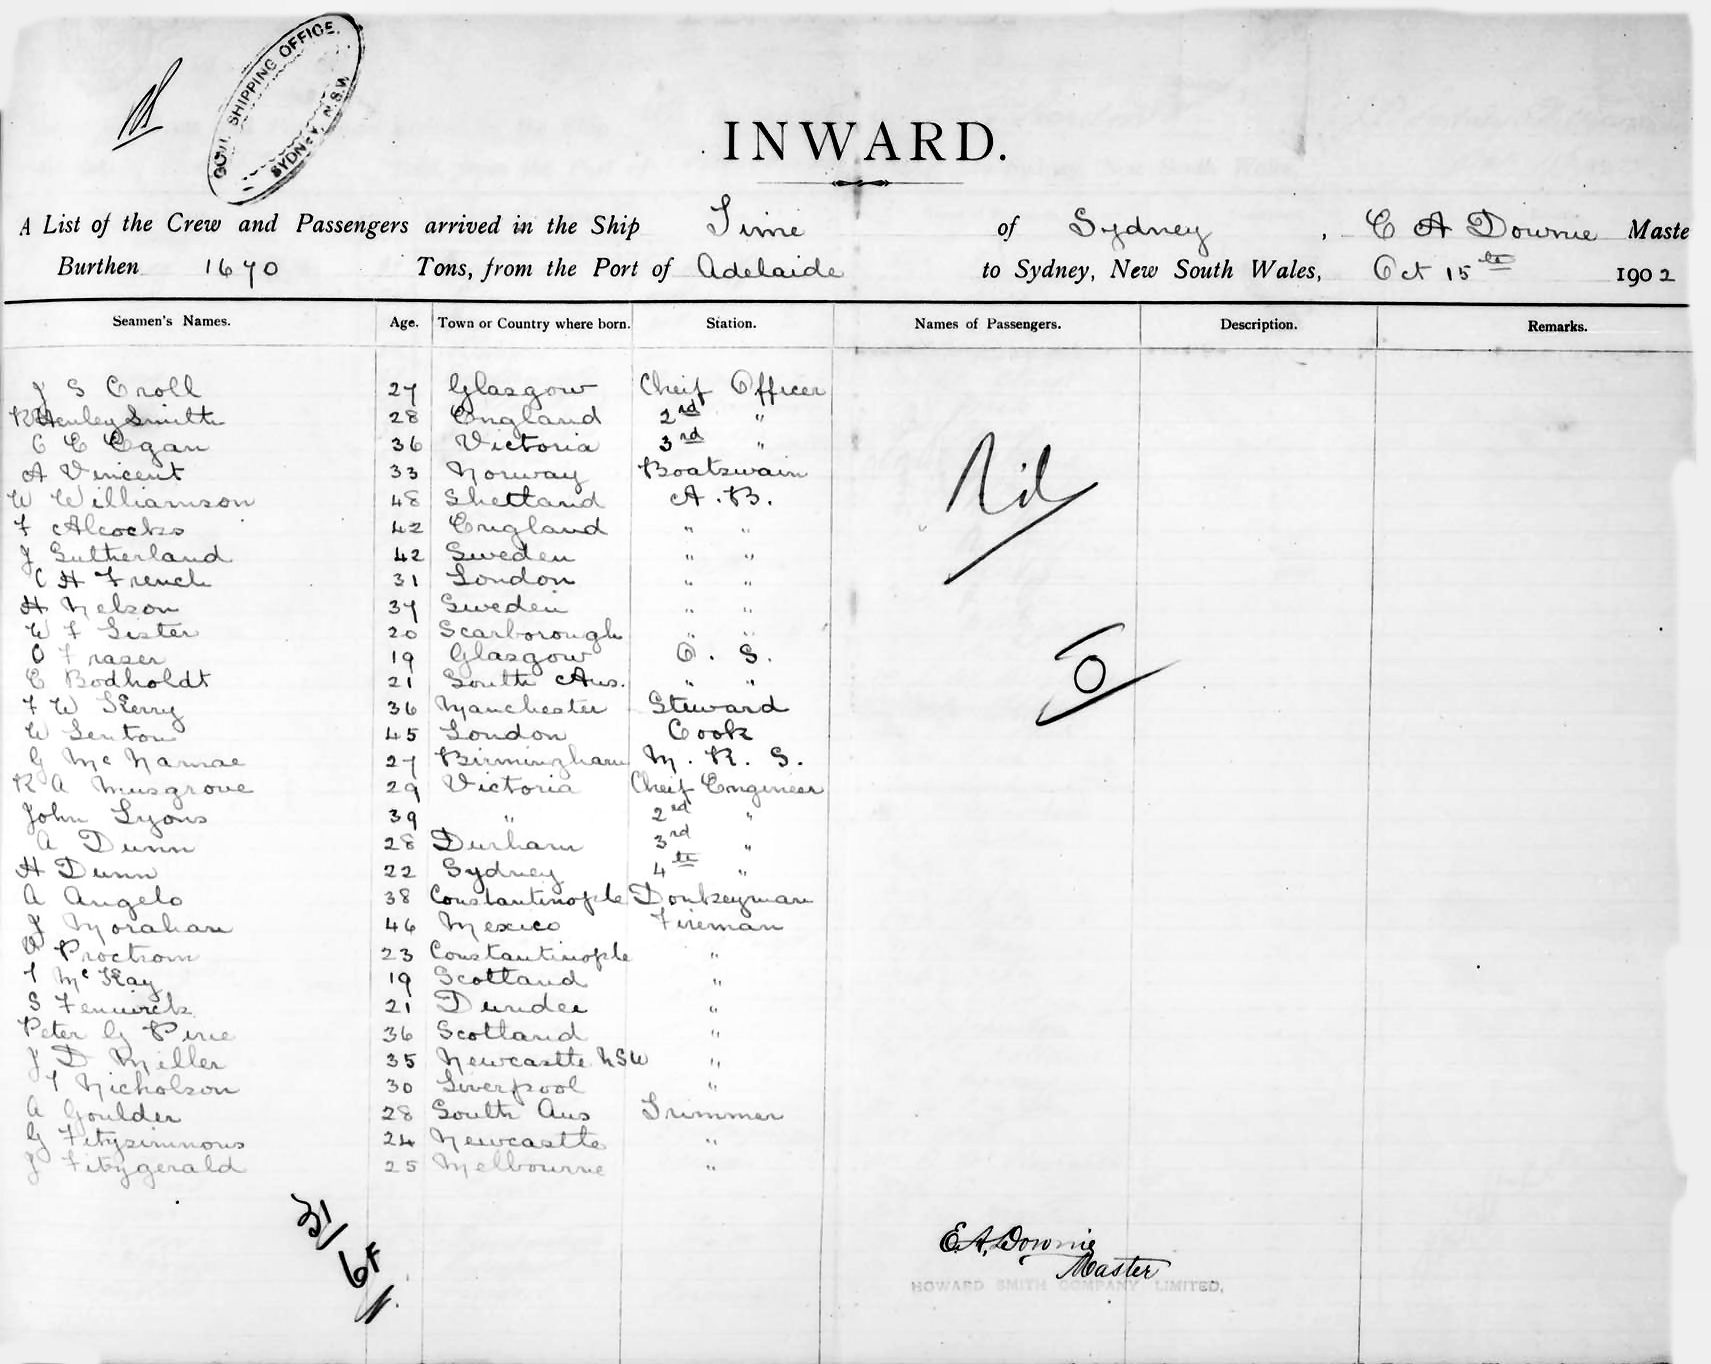 GOVT. SHIPPING OFFICE.
SYDNEY, N.S.W.
INWARD.
A List of the Crew and Passengers arrived in the Ship Time of Sydney, C A Downie Maste
Burthen 1670 Tons, from the Port of Adelaide to Sydney, New South Wales, Oct 15th 1902
Seamen's Names. Age. Town or Country where born. Station. Names of Passengers. Description. Remarks.
J S Croll 27 Glasgow Cheif Officer
R Henley Smith 28 England 2nd "
C C Egan 36 Victoria 3rd "
A Vincent 33 Norway Boatswain
W Williamson 48 Shetland A.B.
Nil
F Alcocks 42 England " "
J Sutherland 42 Sweden " "
C H French 31 London " "
H Nelson 37 Sweden " "
W F Lister 20 Scarborough " "
O Fraser 19 Glasgow O. S.
0
E Bodholdt 21 South Aus. " "
F W Kerry 36 Manchester Steward
W Lenton 45 London Cook
G McNamae 27 Birmingham M. R. S.
R A Musgrove 29 Victoria Cheif Engineer
John Lyons 39 " 2nd "
A Dunn 28 Durham 3rd "
H Dunn 22 Sydney 4th "
A Angelo 38 Constantinople Donkeyman
J Morahan 46 Mexico Fireman
Proctrom 23 Constantinople "
T McKay 19 Scotland "
S Fenwick 21 Dundee "
Peter G Pirie 36 Scotland "
J D Miller 35 Newcastle NSW "
T Nicholson 30 Liverpool "
A Goulder 28 South Aus Trimmer
G Fitzsimmons 24 Newcastle "
J Fitzgerald 25 Melbourne "
31
6F
E.A. Downie
Master
HOWARD SMITH COMPANY LIMITED,